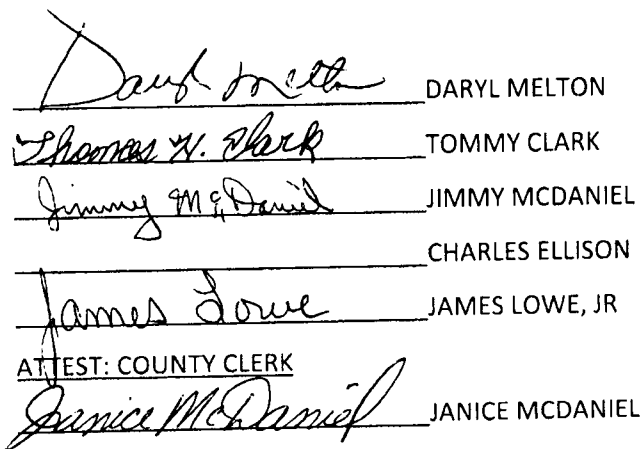 Daryl Melton DARYL MELTON
Thomas H. Clark TOMMY CLARK
Jimmy McDaniel JIMMY MCDANIEL
CHARLES ELLISON
James Lowe JAMES LOWE, JR
ATTEST: COUNTY CLERK
Janice McDaniel JANICE MCDANIEL